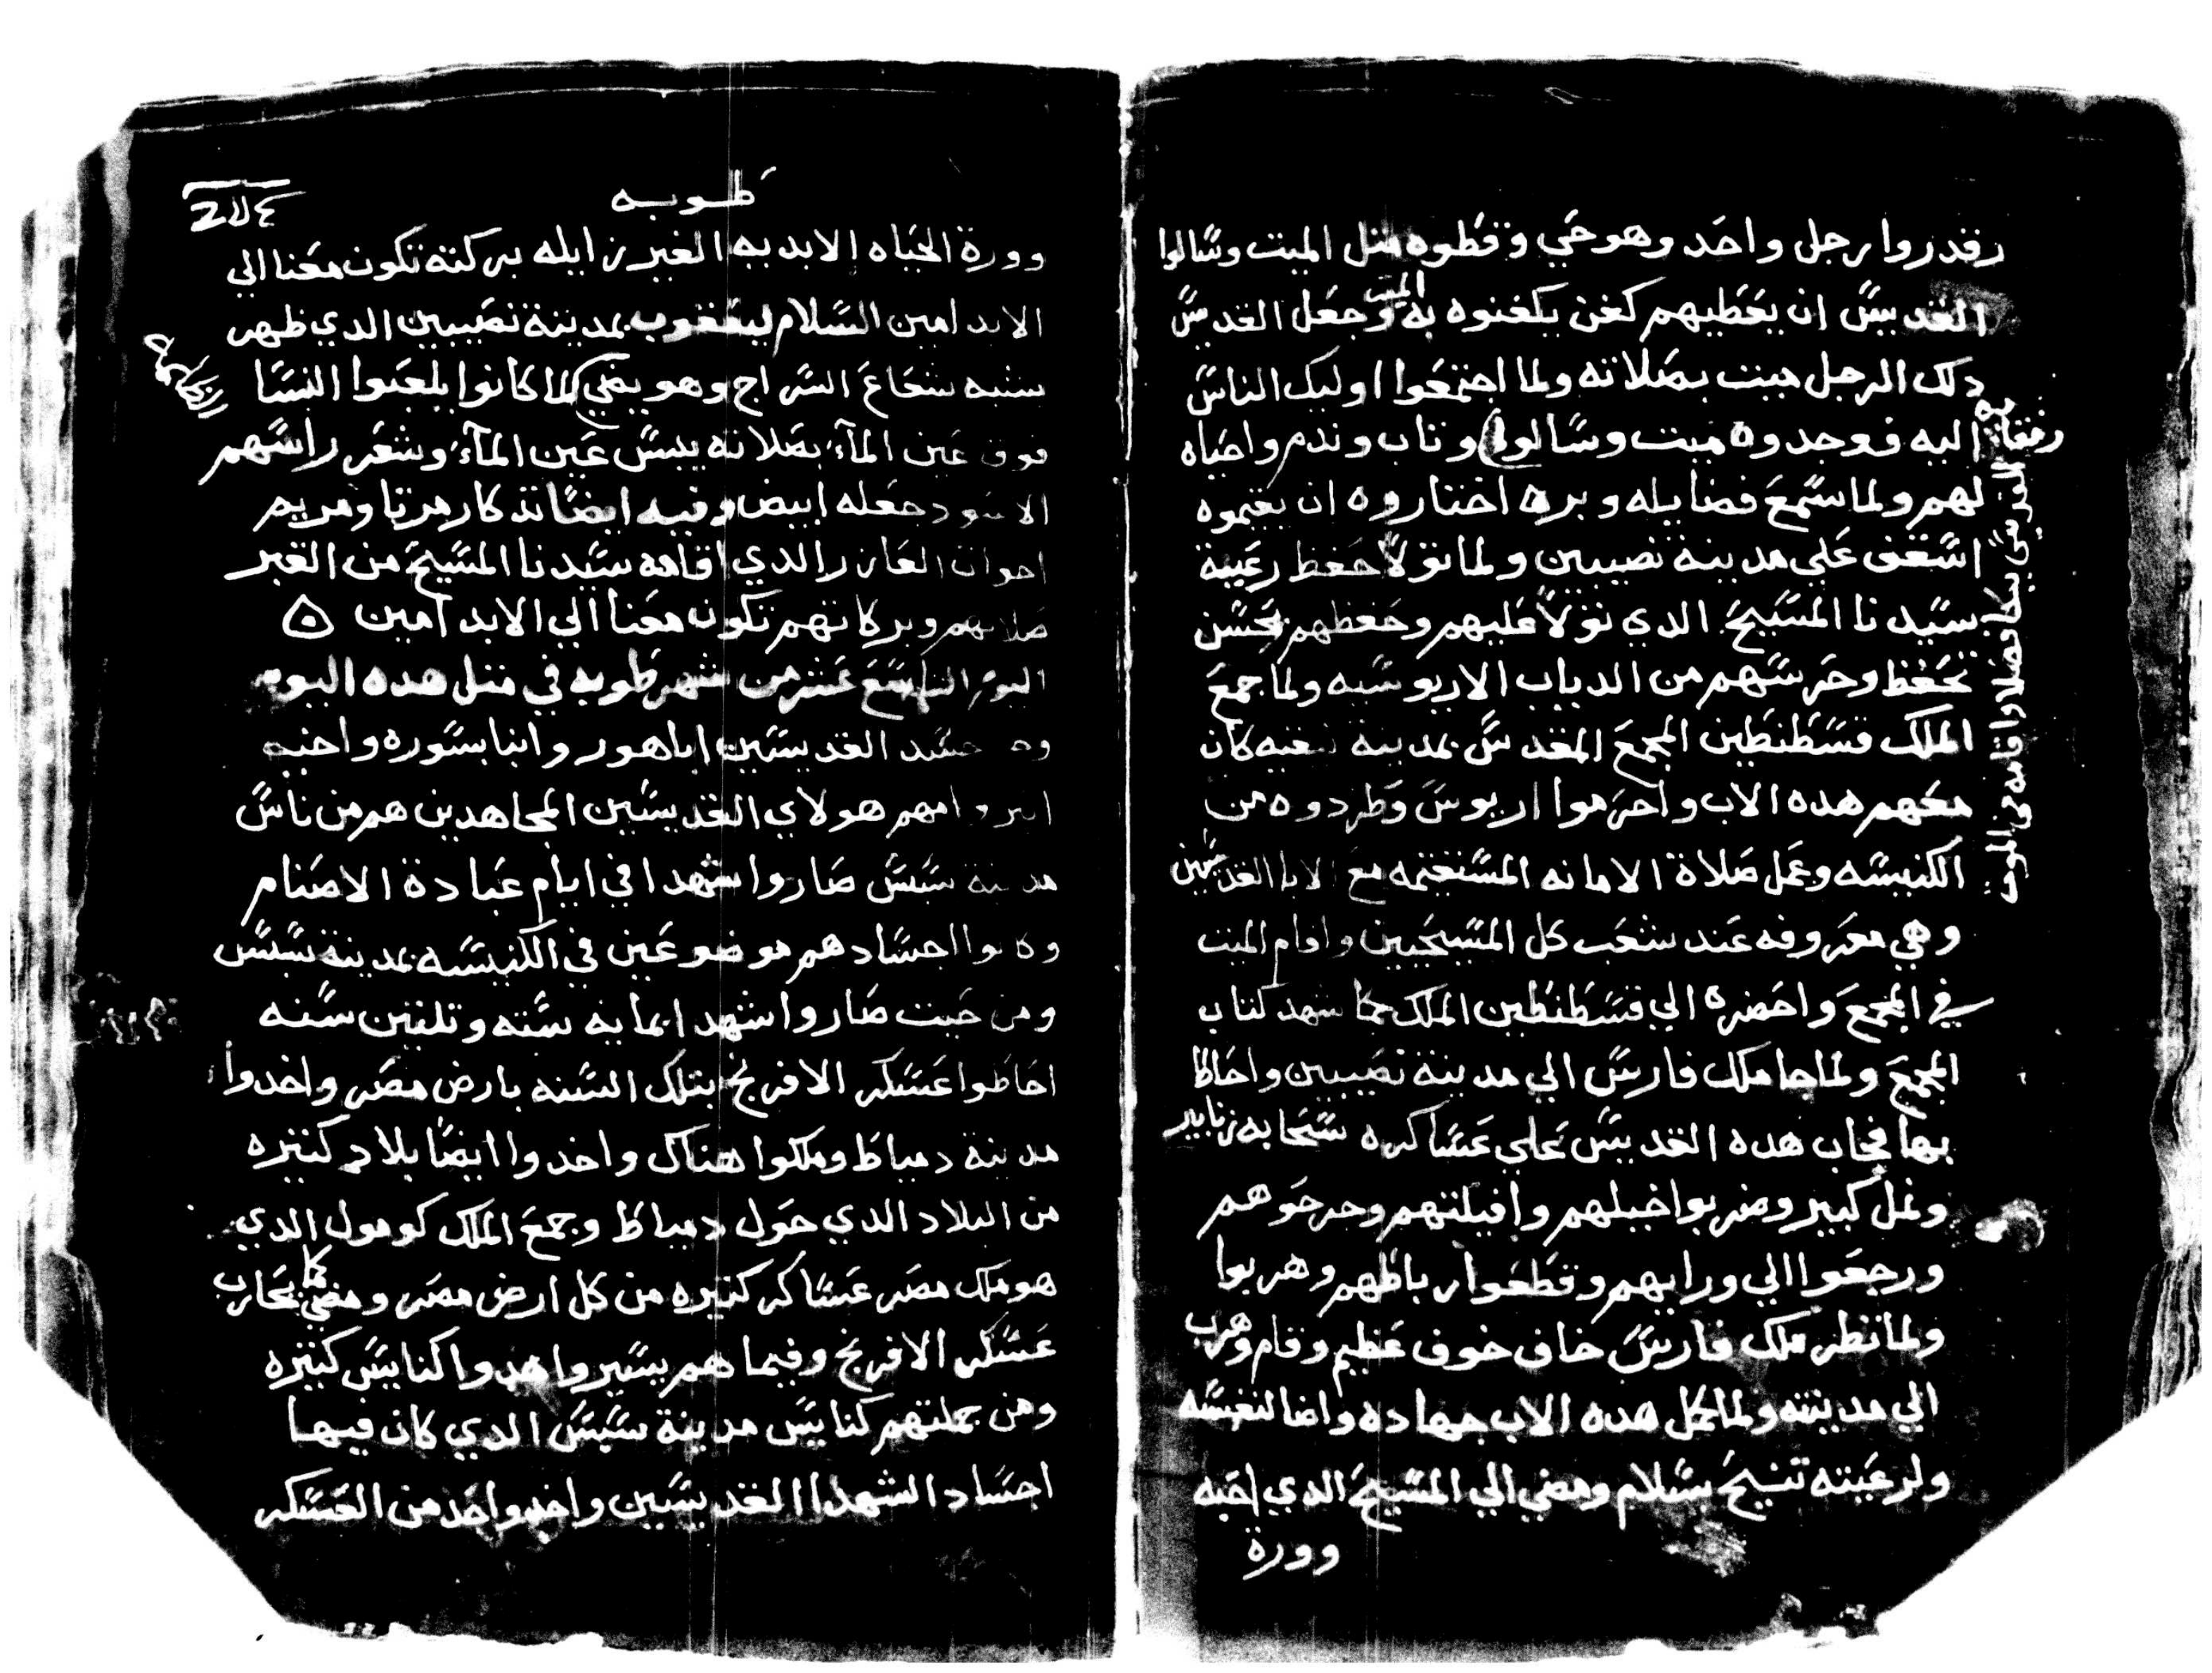 رقدروا رجل واحد وهو حي وغطوه مثل الميت وسالوا
القديس ان يعطيهم كفن يكفنوه به الميت وجعل القديس
دلك الرجل ميت بصلاته ولما اجتمعوا اوليك الناس
اليه فوجدوه ميت وسالوا وتاب وندم واحياه
رفقايه
القديس بكا وصلا واقامه من الموت
لهم ولما سمع فضايله وبره اختاروه ان يقيموه
اسقف علي مدينة نصيبين ولما تولا حفظ رعية
سيدنا المسيح الدي تولا عليهم وحفظهم بحسن
تحفظ وحرسهم من الدياب الاريوسيه ولما جمع
الملك قسطنطين المجمع المقدس بمدينة نيقيه كان
معهم هده الاب واحرموا اريوس وطردوه من
الكنيسه وعمل صلاة الامانه المستقيمه مع الابا القديسين
وهي معروفه عند شعب كل المسيحيين واقام الميت
في المجمع واحضره الي قسطنطين الملك كما شهد كتاب
المجمع ولما جا ملك فارس الي مدينة نصيبين واحاطا
بها فجاب هده القديس علي عساكره سحابه زنابير
ونمل كبير وضربوا خيلهم وافيلتهم وجرحوهم
ورجعوا الي ورايهم وقطعوا رباطهم وهربوا
ولما نظر ملك فارس خاف خوف عظيم وقام وهرب
الي مدينته ولما كمل هده الاب جهاده واضا لنفسه
ولرعيته تنيح بسلام ومضي الي المسيح الدي احبه
وورة
طوبه
وورة الحياه الابديه الغير زايله بركته تكون معنا الي
الابد امين السلام ليعقوب بمدينة نصيبين الدي ظهر
بشبه شعاع السراج وهو يضي لما كانوا يلعبوا النسا
فوق عين المآء بصلاته يبس عين المآء وشعر راسهم
الاسود جعله ابيض وفيه ايضا تدكار مرتا ومريم
اخوات العازر الدي اقامه سيدنا المسيح من القبر
صلاتهم وبركاتهم تكون معنا الي الابد امين ه
اليوم التاسع عشر من شهر طوبه في مثل هده اليوم
القديسين اباهور وانبا بسوره واخيه
وامهم هولاي القديسين المجاهدين هم من ناس
مدينة شبس صاروا شهدا في ايام عبادة الاصنام
وكانوا اجسادهم موضوعين في الكنيسه بمدينة شبس
ومن حيت صاروا شهدا بمايه سته وتلتين سنه
احاطوا عسكر الافرنج بتلك السنه بارض مصر واخدوا
مدينة دمياط وملكوا هناك واخدوا ايضا بلاد كتيره
من البلاد الدي حول دمياط وجمع الملك كومول الدي
هو ملك مصر عساكر كتيره من كل ارض مصر ومضي كما يحارب
عسكر الافرنج وفيما هم يسيروا هدوا كنايس كتيره
ومن جملتهم كنايس مدينة شبس الدي كان فيها
اجساد الشهدا القديسين واخد واحد من العسكر